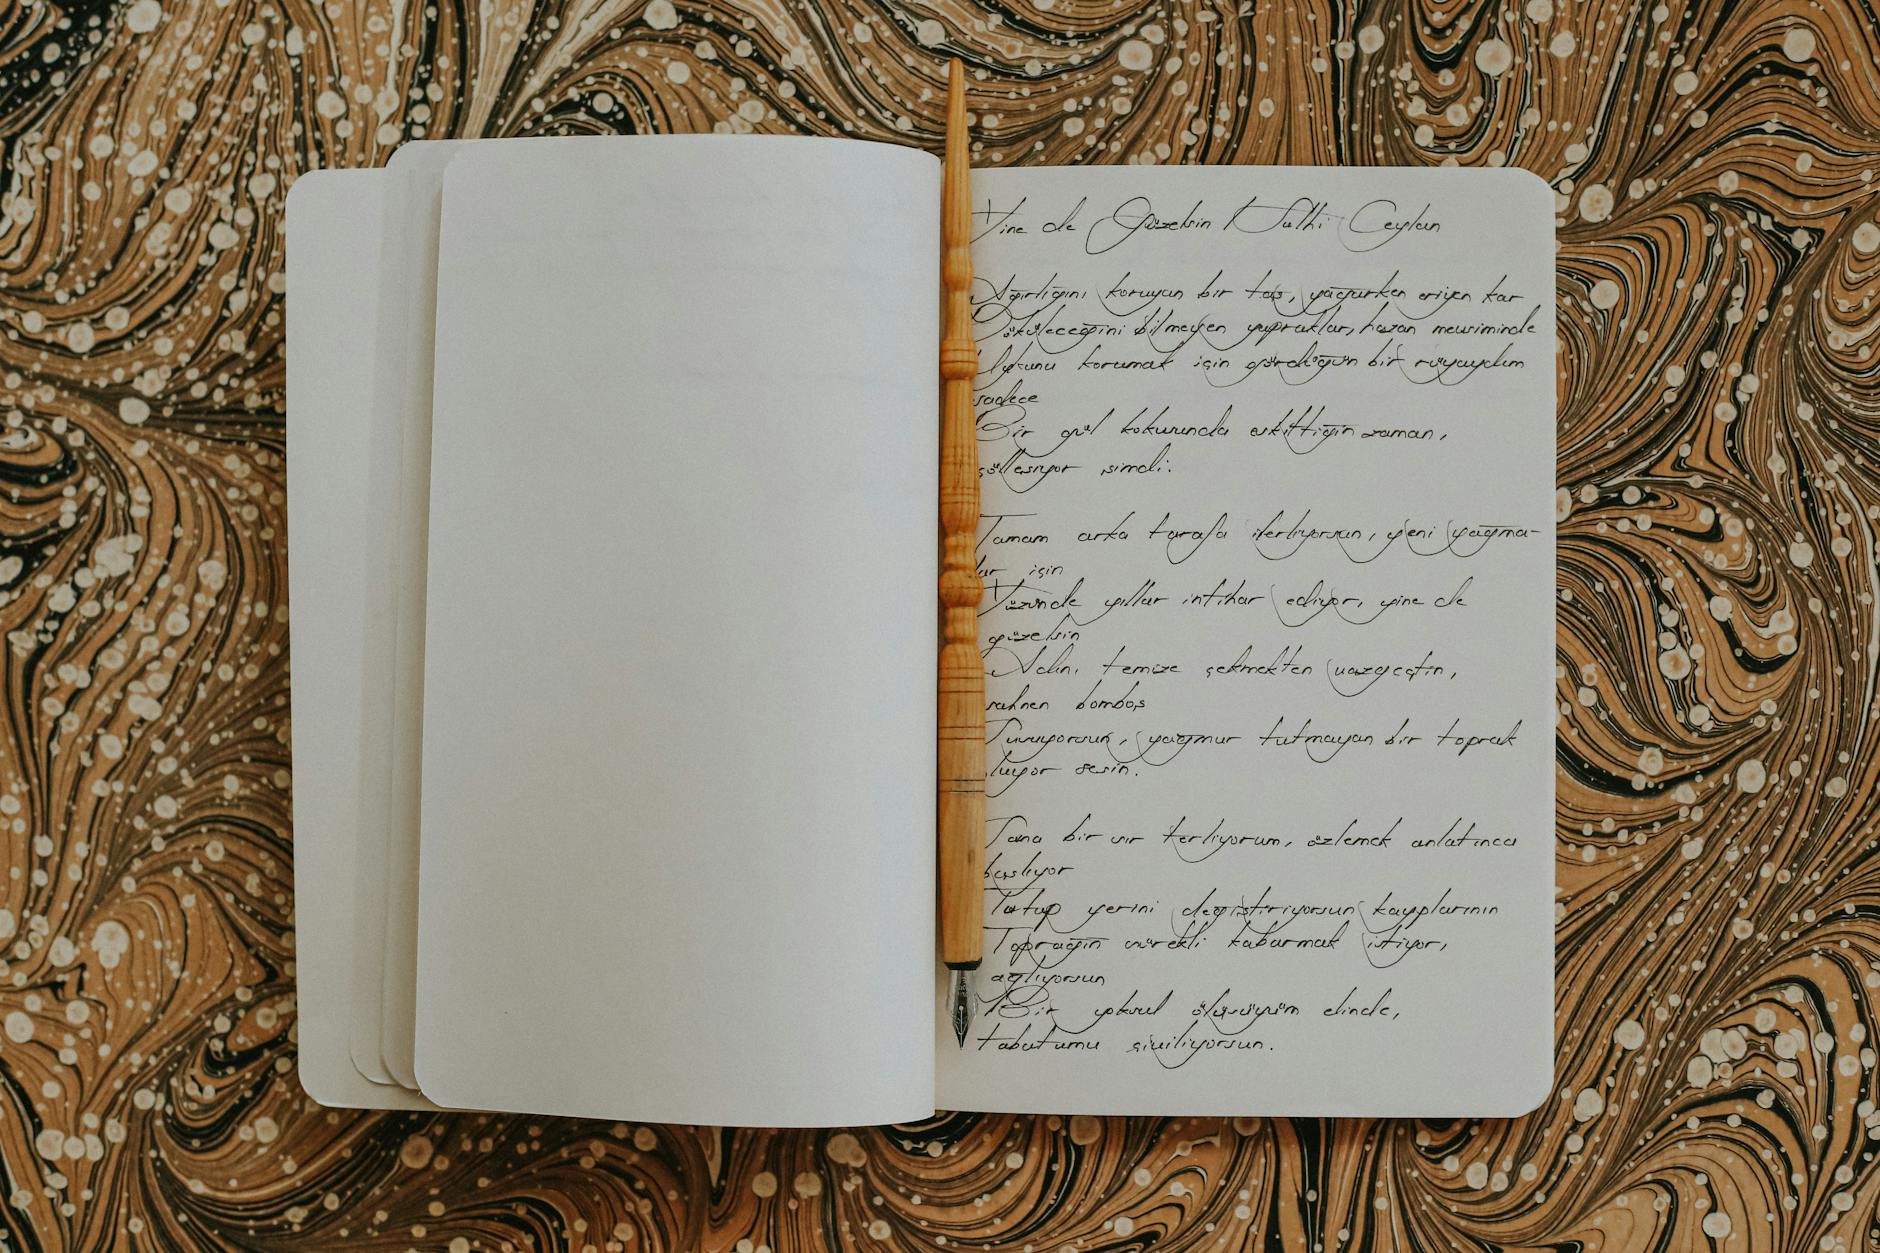 Yine de Güzelsin Fethi Ceylan
Ağırlığını koruyan bir taş, yağarken eriyen kar
Döküleceğini bilmeyen yapraklar, hazan mevsiminde
Uykunu korumak için gördüğün bir rüyaydım
sadece
Bir gül kokusunda eskittiğin zaman,
çölleşiyor şimdi.
Tamam arka tarafa ilerliyorsun, yeni yağma-
lar için
Yüzünde yıllar intihar ediyor, yine de
güzelsin
Adını temize çekmekten vazgeçtin,
sahnen bomboş
Susuyorsun, yağmur tutmayan bir toprak
oluyor sesin.
Sana bir sır terliyorum, özlemek anlatınca
başlıyor
Tutup yerini değiştiriyorsun kayıplarının
Toprağın sürekli kabarmak istiyor,
ağlıyorsun
Bir yoksul ölüsüyüm elinde,
tabutumu çiviliyorsun.